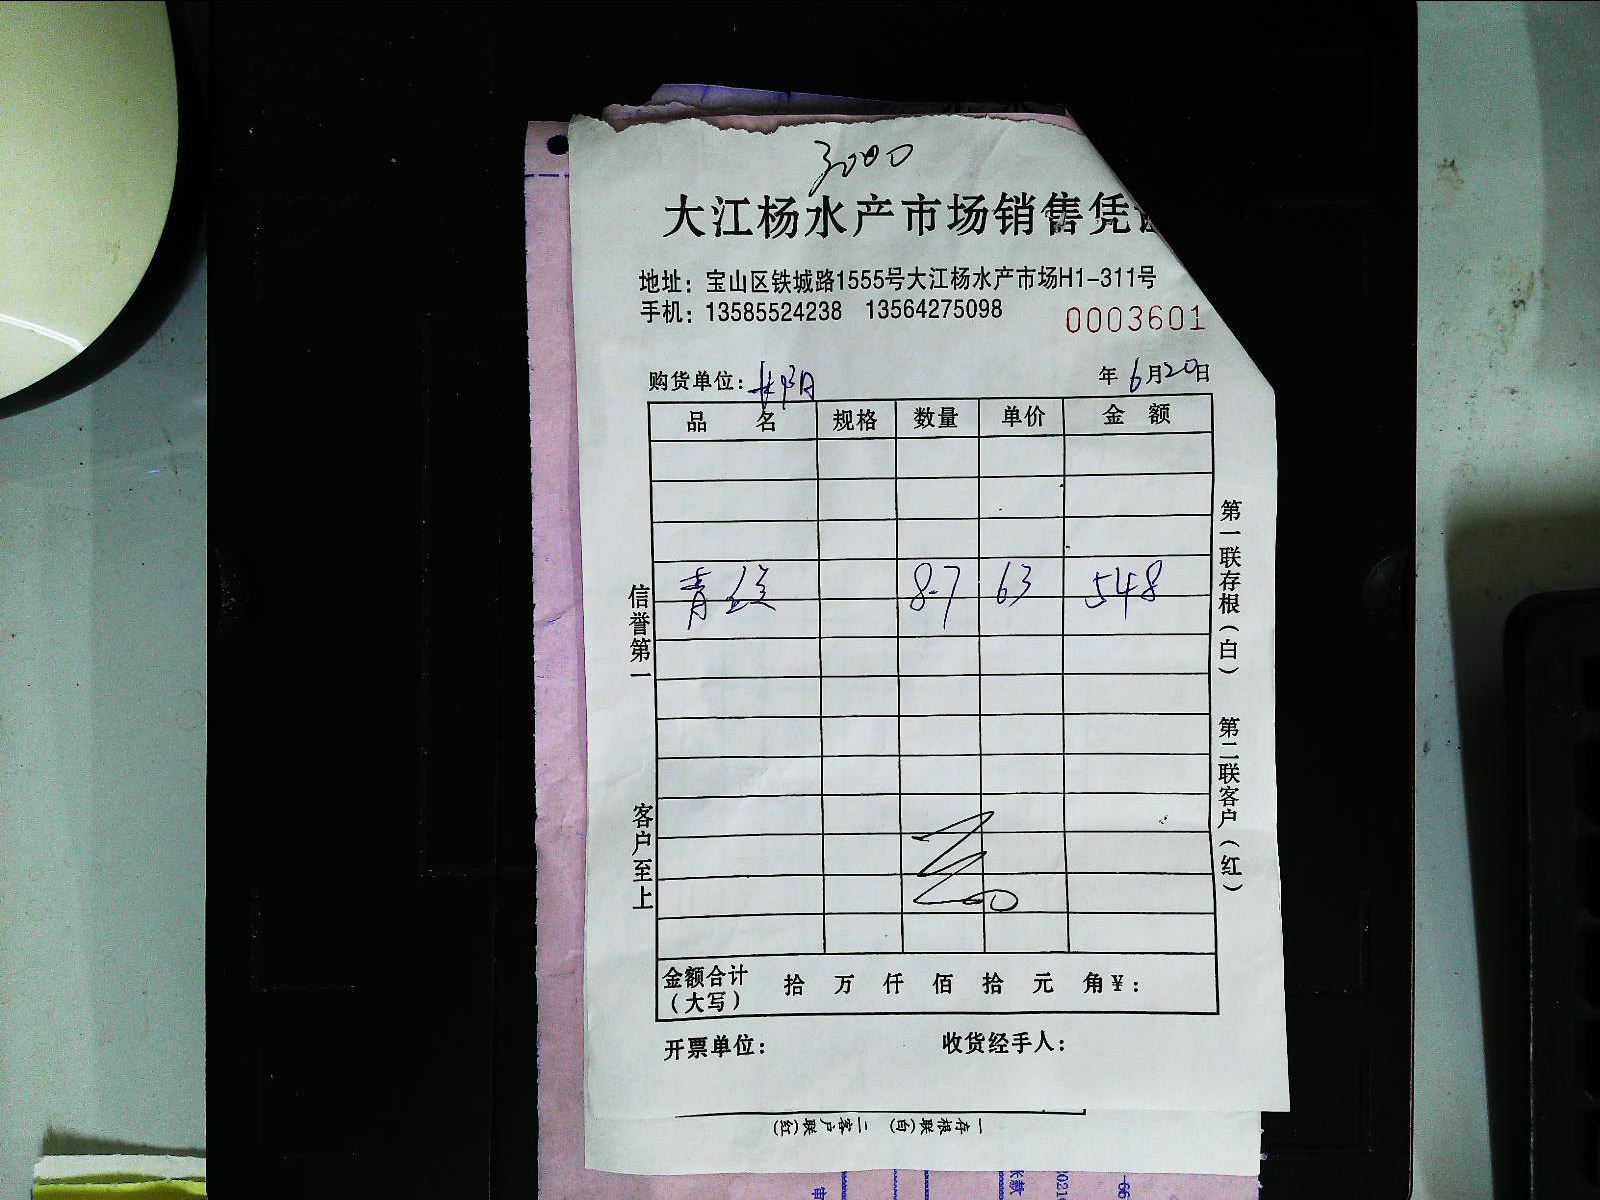 3000
大江杨水产市场销售凭
地址：宝山区铁城路1555号大江杨水产市场H1-311号
手机：13585524238 13564275098
0003601
购货单位：长阳 年6月20日
品 名 规格 数量 单价 金 额
青 8-7 63 548
信誉第一 客户至上
第一联存根（白） 第二联客户（红）
金额合计（大写） 拾 万 仟 佰 拾 元 角￥：
开票单位： 收货经手人：
一存根联(白) 二客户联(红)